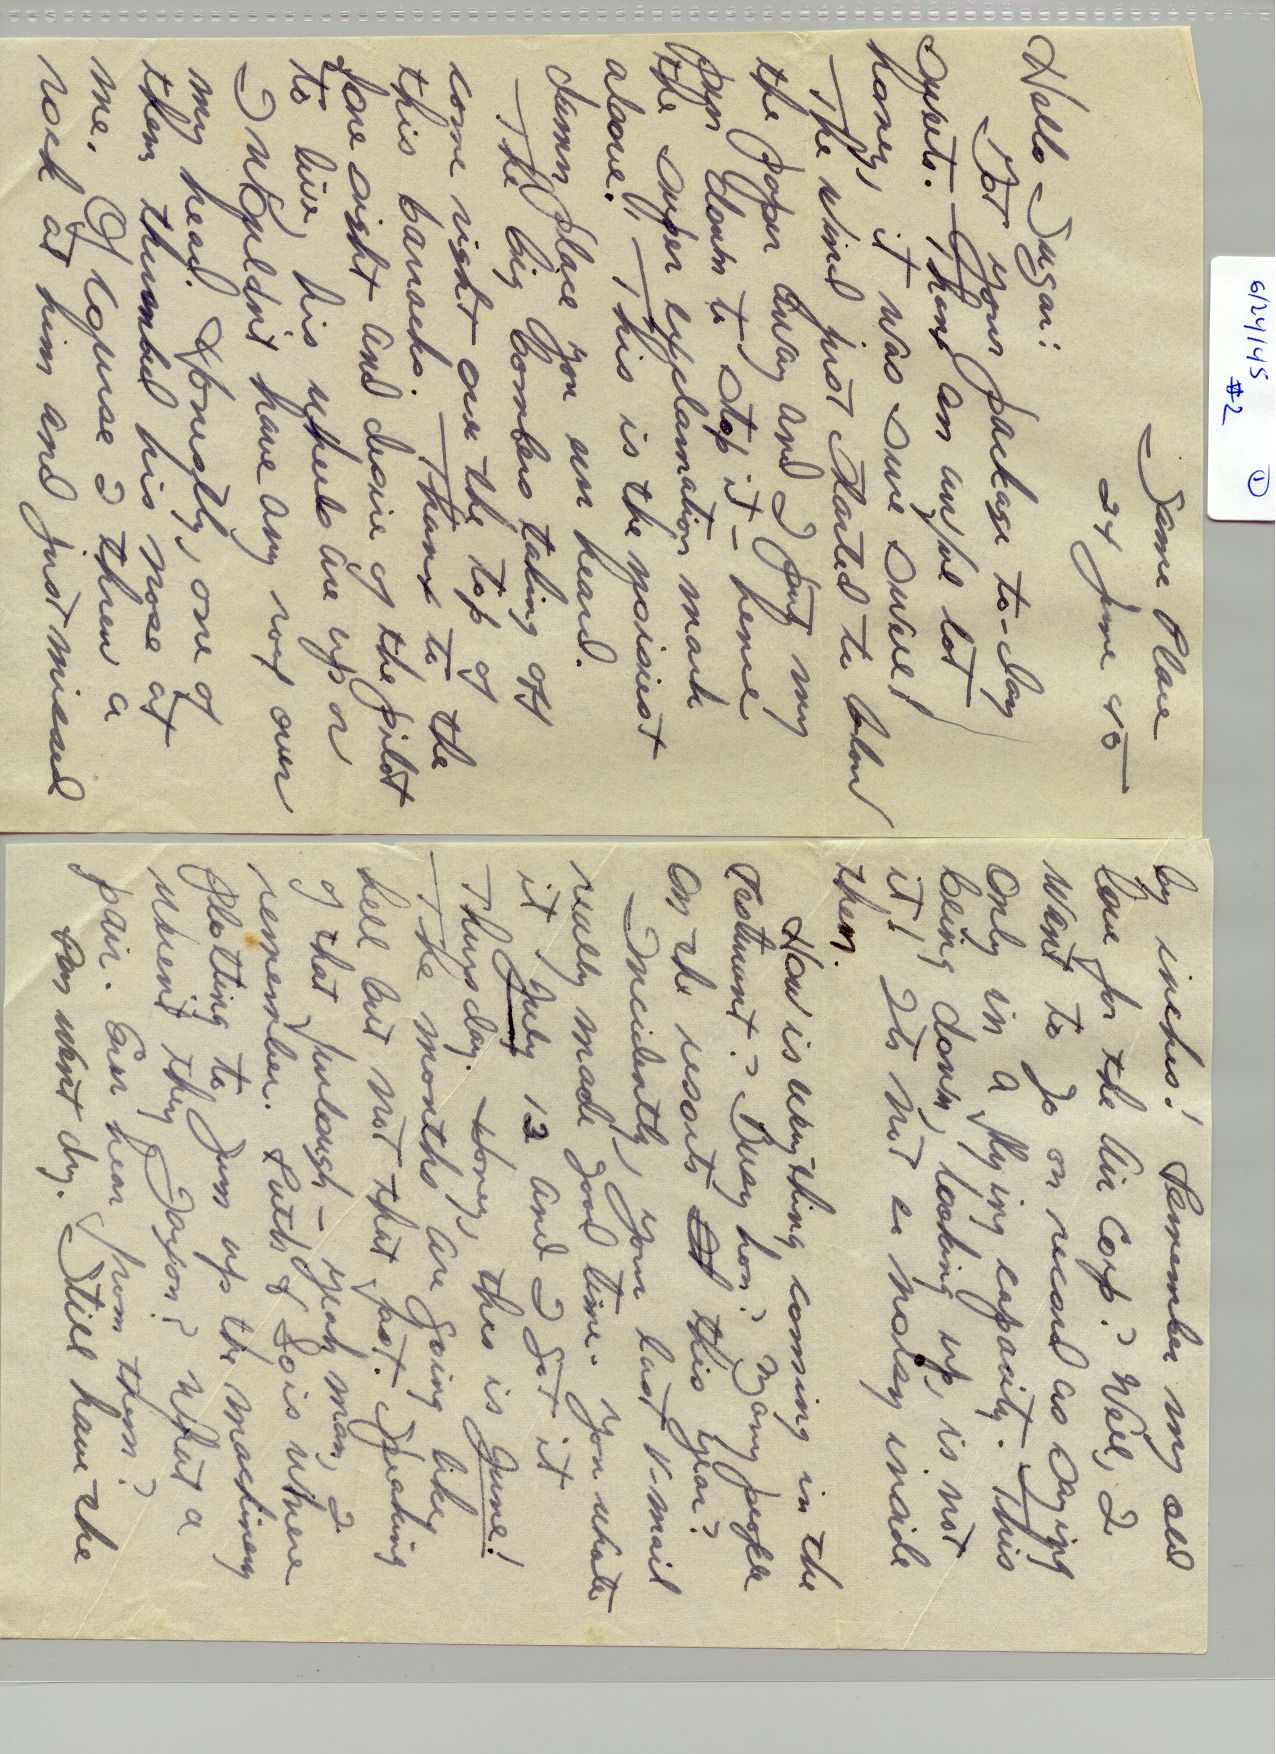 6/24/45
#2
1
Same Place
24 June 45
Hello Sugar:
Got your package to-day
Sweets. Thanx an awful lot
honey, it was sure swell!
The wind just started to blow
the paper away and I put my
pen down to stop it - hence
the super explamation mark
above. This is the noisiest
damn place you ever heard.
The big bombers taking off
come right over the top of
this barracks. Thanx to the
fore sight and desire of the pilot
to live, his wheels are up or
I wouldn't have any roof over
my head. Honestly, one of
them thumbed his nose at
me. Of course I threw a
rock at him and just missed
by inches! Remember my old
love for the Air Corp? Well, I
want to go on record as saying
only in a flying capacity. This
being down, looking up, is not
it! Its not so noisy inside
them.
How is everything coming in the
Busy hon? Many people
on the resorts this year?
Incidently, your last V-mail
really made good time. You wrote
it July 12 and I got it
Thursday. Honey, this is June!
The months are going like
hell but not that fast. Speaking
of that furlough - yeah man, I
remember. Ruth & Lois were
plotting to gum up the machinery
weren't they Jayson? What a
pair. Ever hear from them?
Pen went dry. Still have the